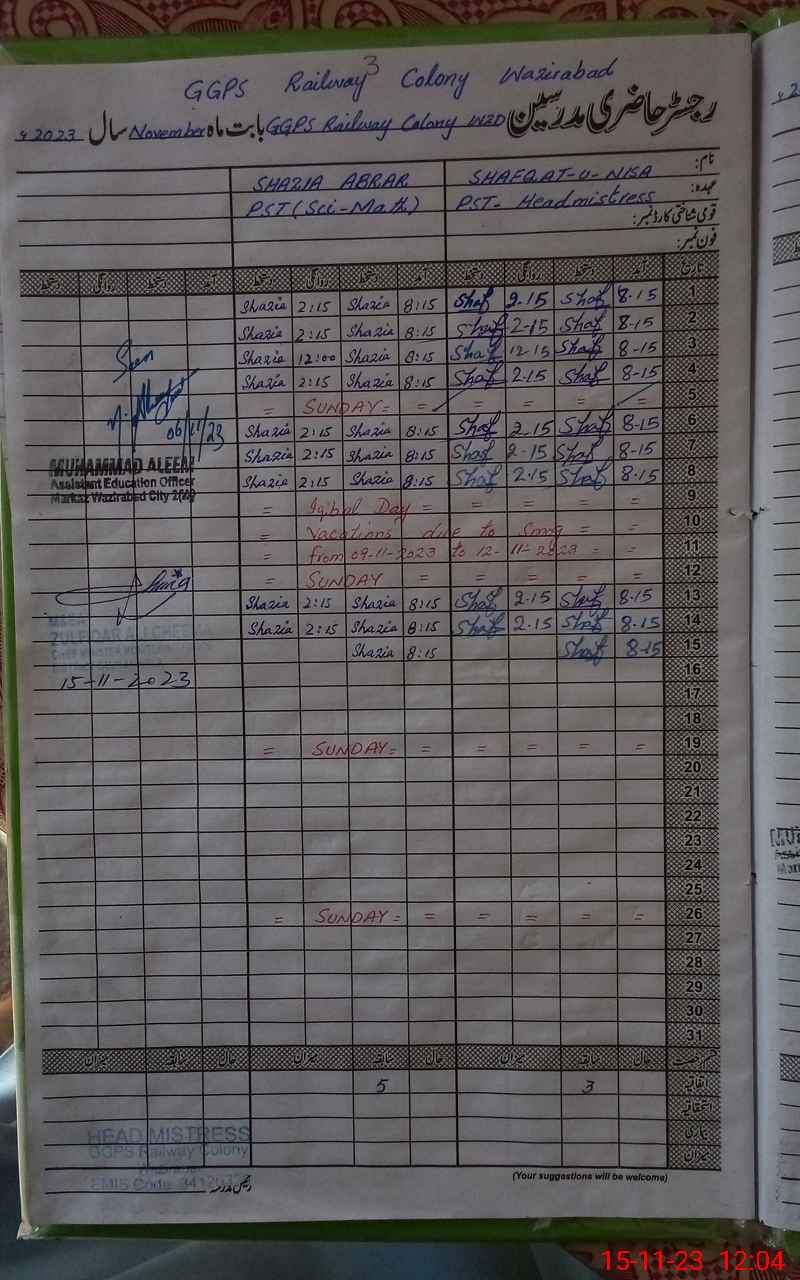 3
GGPS Railway Colony Wazirabad
رجسٹر حاضری مدرسین GGPS Railway Colony WZD بابت ماہ November سال 2023ء
نام: SHAFQAT-U-NISA SHAZIA ABRAR
عہدہ: PST- Headmistress PST (Sci-Math)
قومی شناختی کارڈ نمبر:
فون نمبر:
تاریخ آمد دستخط روانگی دستخط آمد دستخط روانگی دستخط آمد دستخط روانگی دستخط
1 8-15 Shaf 2-15 Shaf 8:15 Shazia 2:15 Shazia
2 8-15 Shaf 2-15 Shaf 8:15 Shazia 2:15 Shazia
3 8-15 Shaf 12.15 Shaf 8:15 Shazia 12:00 Shazia
4 8-15 Shaf 2.15 Shaf 8:15 Shazia 2:15 Shazia
5 = SUNDAY = = = = = =
6 8-15 Shaf 2.15 Shaf 8:15 Shazia 2:15 Shazia
7 8-15 Shaf 2-15 Shaf 8:15 Shazia 2:15 Shazia
8 8.15 Shaf 2.15 Shaf 8:15 Shazia 2:15 Shazia
9 = Iqbal Day = = = = =
10 = Vacations due to Smog = =
11 = from 09-11-2023 to 12-11-2023 = =
12 = SUNDAY = = = = =
13 8.15 Shaf 2.15 Shaf 8:15 Shazia 2:15 Shazia
14 8.15 Shaf 2.15 Shaf 8:15 Shazia 2:15 Shazia
15 8-15 Shaf 8:15 Shazia
16
17
18
19 = SUNDAY = = = = = =
20
21
22
23
24
25
26 = SUNDAY = = = = = =
27
28
29
30
31
Seen
06/11/23
MUHAMMAD ALEEM
Assistant Education Officer
Markaz Wazirabad City 2(W)
M&EA
ZULFIQAR ALI CHEEMA
15-11-2023
قسم رخصت حال سابقہ میزان حال سابقہ میزان حال سابقہ میزان
اتفاقیہ 3 5
استحقاقیہ
بیماری
میزان
HEAD MISTRESS
GGPS Railway Colony
Wazirabad
EMIS Code
رئیس مدرسہ
(Your suggestions will be welcome)
15-11-23 12:04